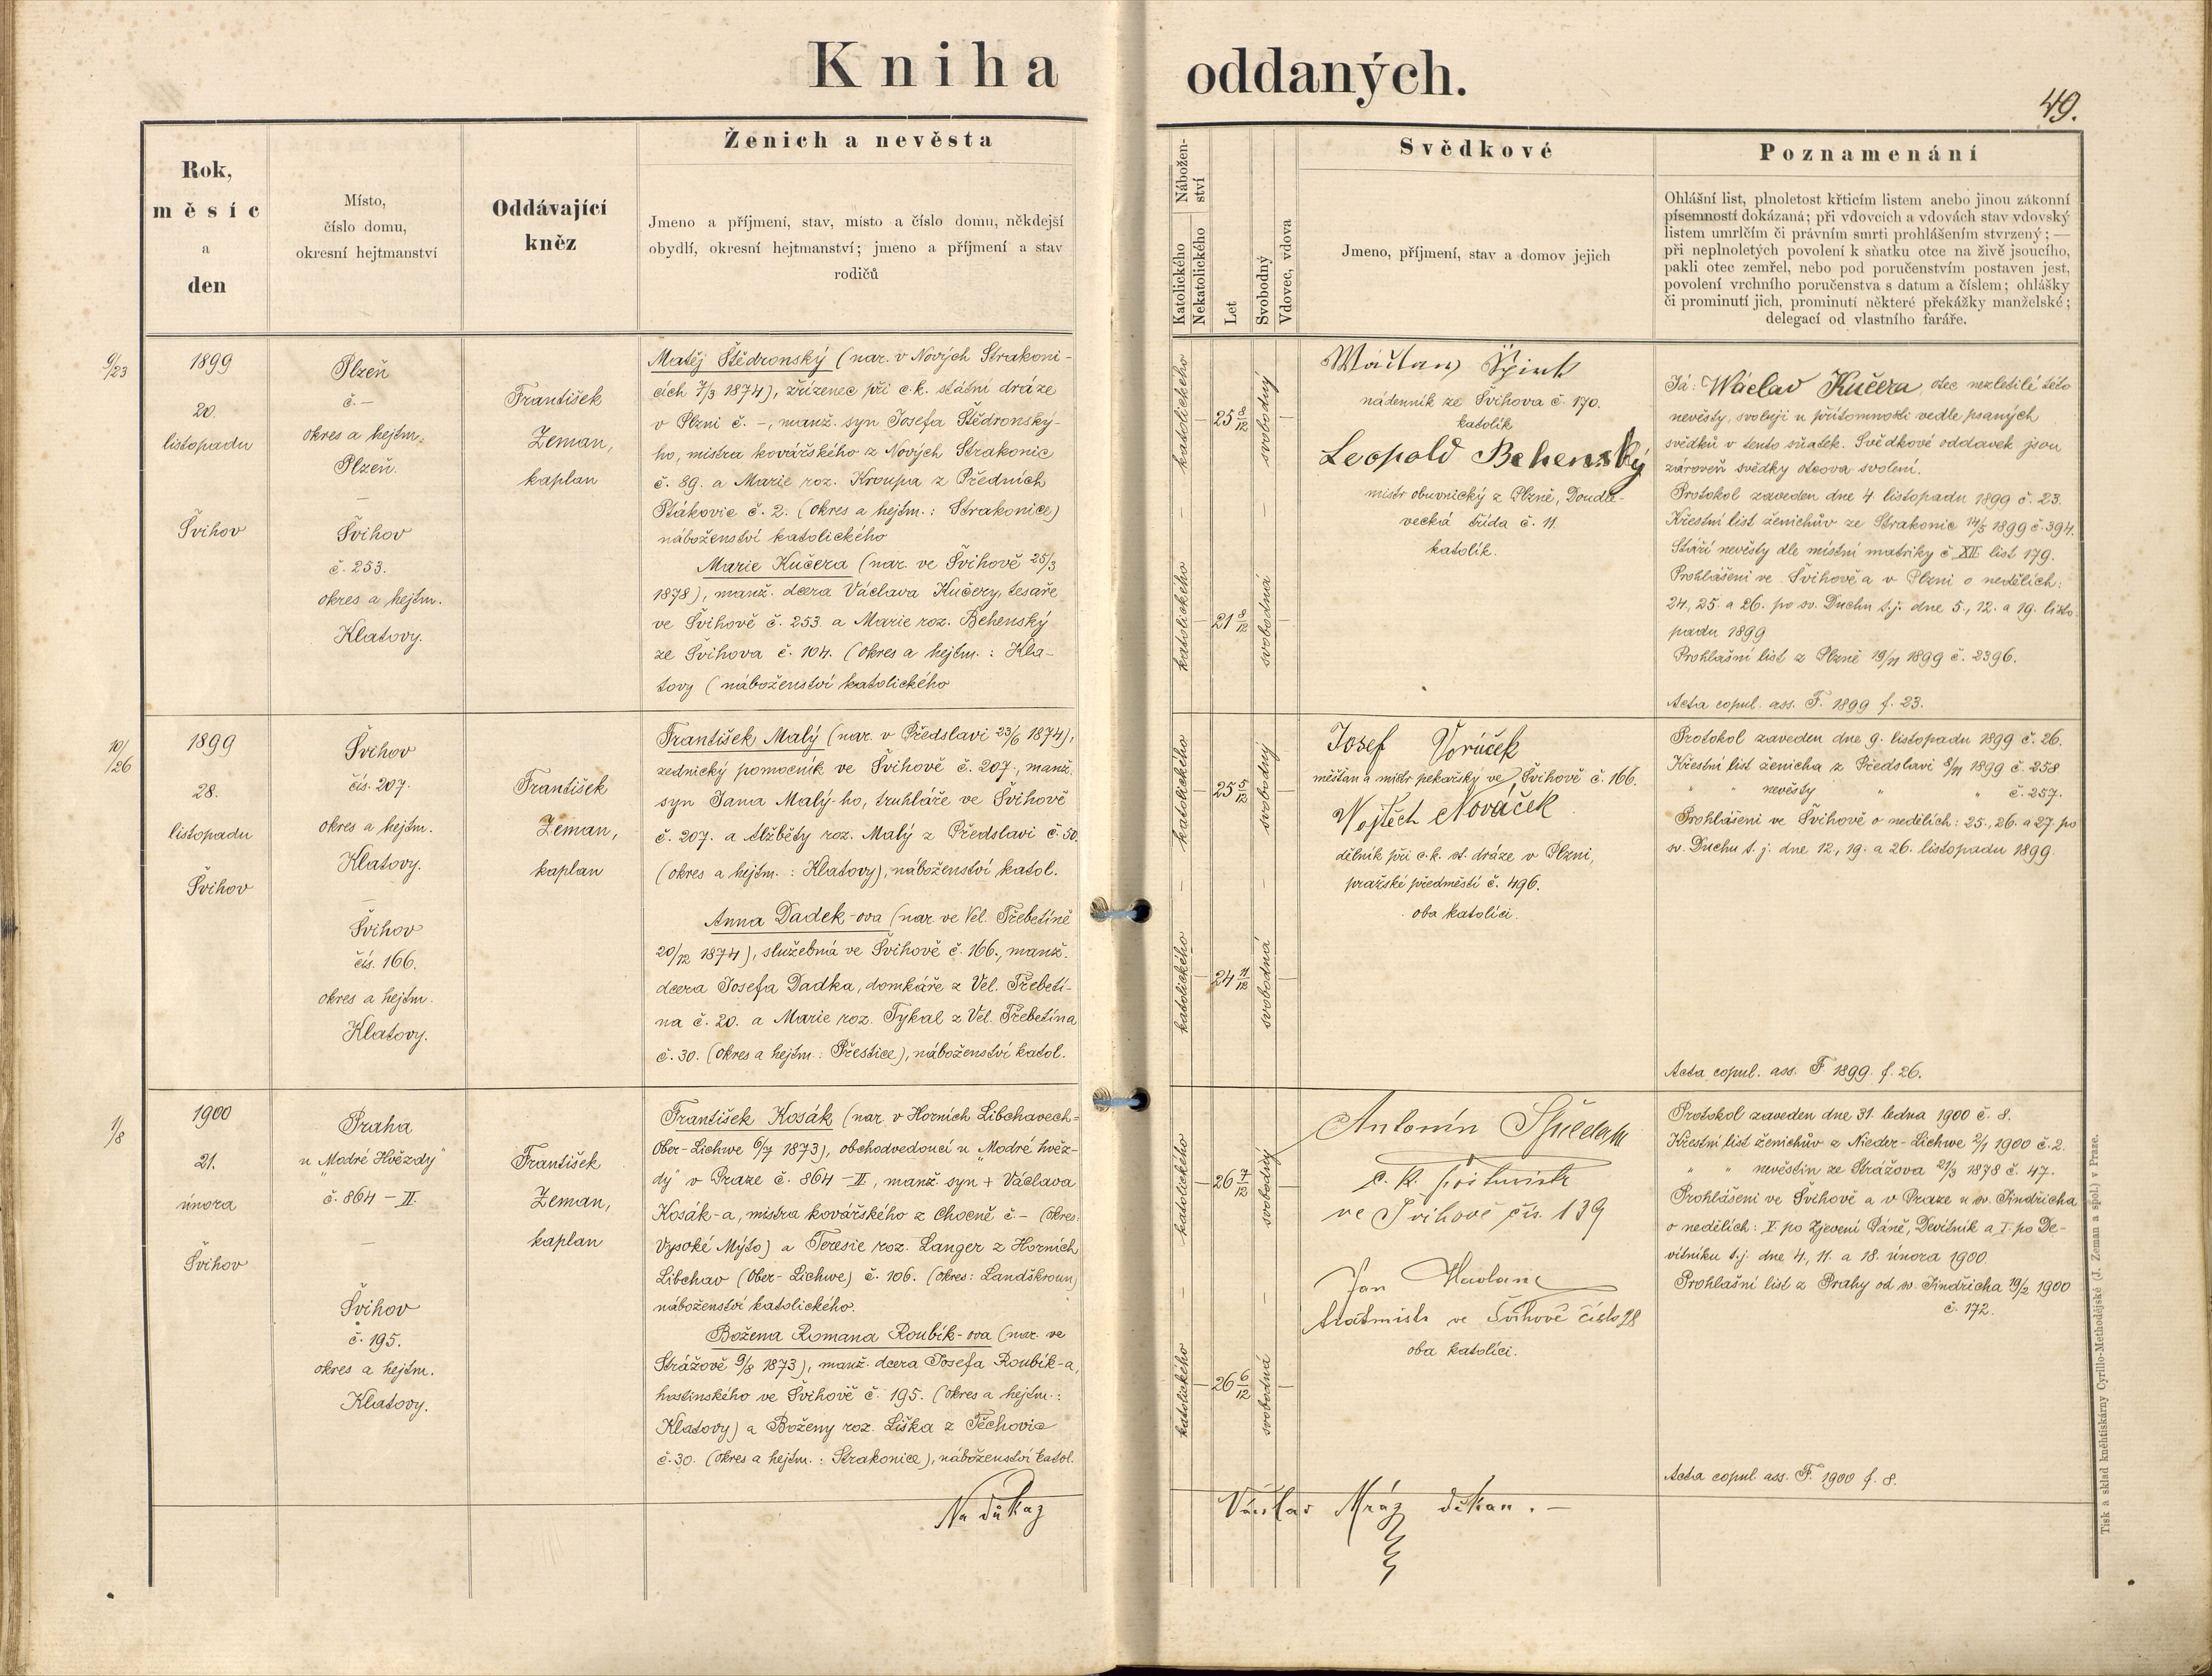 Kniha oddaných.
49.
Rok,
měsíc
a
den
Místo,
číslo domu,
okresní hejtmanství
Oddávající
kněz
Ženich a nevěsta
Jmeno a příjmení, stav, místo a číslo domu, někdejší
obydlí, okresní hejtmanství; jmeno a příjmení a stav
rodičů
Nábožen-
ství
Katolického
Nekatolického
Let
Svobodný
Vdovec, vdova
Svědkové
Jmeno, příjmení, stav a domov jejich
Poznamenání
Ohlášní list, plnoletost křticím listem anebo jinou zákonní
písemností dokázaná; při vdovcích a vdovách stav vdovský
listem umrlčím či právním smrti prohlášením stvrzený; —
při neplnoletých povolení k sňatku otce na živě jsoucího,
pakli otec zemřel, nebo pod poručenstvím postaven jest,
povolení vrchního poručenstva s datum a číslem; ohlášky
či prominutí jich, prominutí některé překážky manželské;
delegací od vlastního faráře.
9/23
1899
20.
listopadu
Švihov
Plzeň
č. —
okres a hejtm.
Plzeň.
—
Švihov
č. 253.
okres a hejtm.
Klatovy.
František
Zeman,
kaplan
Matěj Štědronský (nar. v Nových Strakoni-
cích 7/3 1874), zřízenec při c.k. státní dráze
v Plzni č. –, manž. syn Josefa Štědronský-
ho, mistra kovářského z Nových Strakonic
č. 89. a Marie roz. Kroupa z Předních
Ptákovic č. 2. (okres a hejtm.: Strakonice)
náboženství katolického
Marie Kučera (nar. ve Švihově 25/3
1878), manž. dcera Václava Kučery, tesaře
ve Švihově č. 253. a Marie roz. Behenský
ze Švihova č. 104. (okres a hejtm.: Kla-
tovy (náboženství katolického
katolického
25 8/12
svobodný
katolického
21 8/12
svobodná
Václav
nádenník ze Švihova č. 170.
katolík
Leopold Behenský
mistr obuvnický z Plzně, Doudle-
vecká třída č. 11.
katolík.
Já: Wáclav Kučera, otec nezletilé této
nevěsty, svoluji u přítomnosti vedle psaných
svědků v tento sňatek. Svědkové oddavek jsou
zároveň svědky otcova svolení.
Protokol zaveden dne 4. listopadu 1899 č. 23.
Křestní list ženichův ze Strakonic 14/5 1899 č. 394.
Stáří nevěsty dle místní matriky č. XII list 179.
Prohlášeni ve Švihově a v Plzni o nedělích:
24., 25. a 26. po sv. Duchu t.j. dne 5., 12. a 19. listo-
padu 1899
Prohlašní list z Plzně 19/11 1899 č. 2396.
Acta copul. ass. F. 1899 f. 23.
10/26
1899
28.
listopadu
Švihov
Švihov
čís. 207.
okres a hejtm.
Klatovy.
—
Švihov
čís. 166.
okres a hejtm.
Klatovy.
František
Zeman,
kaplan
František Malý (nar. v Předslavi 23/6 1874),
zednický pomocník ve Švihově č. 207., manž.
syn Jana Malý-ho, truhláře ve Švihově
č. 207. a Alžběty roz. Malý z Předslavi č. 50.
(okres a hejtm.: Klatovy), náboženství katol.
Anna Dadek-ova (nar. ve Vel. Třebetíně
20/12 1874), služebná ve Švihově č. 166., manž.
dcera Josefa Dadka, domkáře z Vel. Třebetí-
na č. 20. a Marie roz. Tykal z Vel. Třebetína
č. 30. (okres a hejtm.: Přestice), náboženství katol.
katolického
25 5/12
svobodný
katolického
24 11/12
svobodná
Josef Voráček
měšťan a mistr pekařský ve Švihově č. 166.
Vojtěch Nováček
dělník při c.k. st. dráze v Plzni,
pražské předměstí č. 496.
oba katolíci.
Protokol zaveden dne 9. listopadu 1899 č. 26.
Křestní list ženicha z Předslavi 8/11 1899 č. 258
" " nevěsty " " č. 257.
Prohlášeni ve Švihově o nedělích: 25., 26. a 27. po
sv. Duchu t. j. dne 12., 19. a 26. listopadu 1899.
Acta copul. ass. F 1899. f. 26.
1/8
1900
21.
února
Švihov
Praha
u „Modré Hvězdy"
č. 864 – II.
—
Švihov
č. 195.
okres a hejtm.
Klatovy.
František
Zeman,
kaplan
František Kosák (nar. v Horních Libchavech-
Ober-Lichwe 6/7 1873), obchodvedoucí u „Modré hvěz-
dy" v Praze č. 864 – II., manž. syn + Václava
Kosák-a, mistra kovářského z Chocně č. – (okres:
Vysoké Mýto) a Teresie roz. Langer z Horních
Libchav (Ober-Lichwe) č. 106. (okres: Landškroun)
náboženství katolického.
Božena Romana Roubík-ova (nar. ve
Strážově 9/8 1873), manž. dcera Josefa Roubík-a,
hostinského ve Švihově č. 195. (okres a hejtm.:
Klatovy) a Boženy roz. Liška z Těchovic
č. 30. (okres a hejtm.: Strakonice), náboženství katol.
katolického
26 7/12
svobodný
katolického
26 6/12
svobodná
Antonín
c. k. poštmistr
ve Švihově čís. 139
Jan
ve Švihově číslo 28
oba katolíci.
Protokol zaveden dne 31. ledna 1900 č. 8.
Křestní list ženichův z Nieder-Lichwe 2/1 1900 č. 2.
" " nevěstin ze Strážova 21/3 1878 č. 47.
Prohlášeni ve Švihově a v Praze u sv. Jindřicha
o nedělích: V. po Zjevení Páně, Devítník a I. po De-
vítníku t.j. dne 4., 11. a 18. února 1900.
Prohlašní list z Prahy od sv. Jindřicha 19/2 1900
č. 172.
Acta copul. ass. F. 1900 f. 8.
Na důkaz
Václav Mráz děkan. —
Tisk a sklad knihtiskárny Cyrillo-Methodějské (J. Zeman a spol.) v Praze.